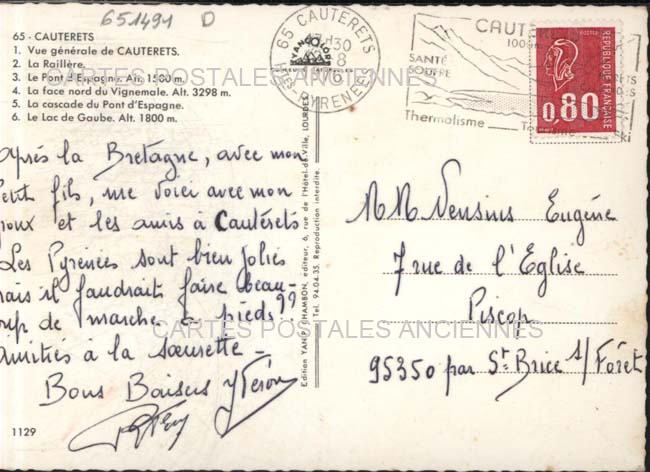 651491 D
65 - CAUTERETS
1. Vue générale de CAUTERETS.
2. La Raillère.
3. Le Pont d'Espagne. Alt. 1500 m.
4. La face nord du Vignemale. Alt. 3298 m.
5. La cascade du Pont d'Espagne.
6. Le Lac de Gaube. Alt. 1800 m.
65 CAUTERETS
17H30
8
1976
HTES PYRENEES
YAN COLOR
CAUT
SANTÉ
SOUFRE
Thermalisme
ski
REPUBLIQUE FRANÇAISE
0,80
POSTES
CARTES POSTALES ANCIENNES
après la Bretagne, avec mon
petit fils, me voici avec mon
poux et les amis à Cautérets
Les Pyrénées sont bien jolies
mais il faudrait faire beau-
oup de marche à pieds??
amitiés à la sœurette -
Bons Baisers
1129
Edition YAN P. CHAMBON, éditeur, 6, rue de l'Hôtel-de-Ville, LOURDES
Tel. 94.04.35. Reproduction interdite.
MM Vensius Eugéne
7 rue de l'Eglise
Piscop
95350 par St Brice s/Forêt
CARTES POSTALES ANCIENNES